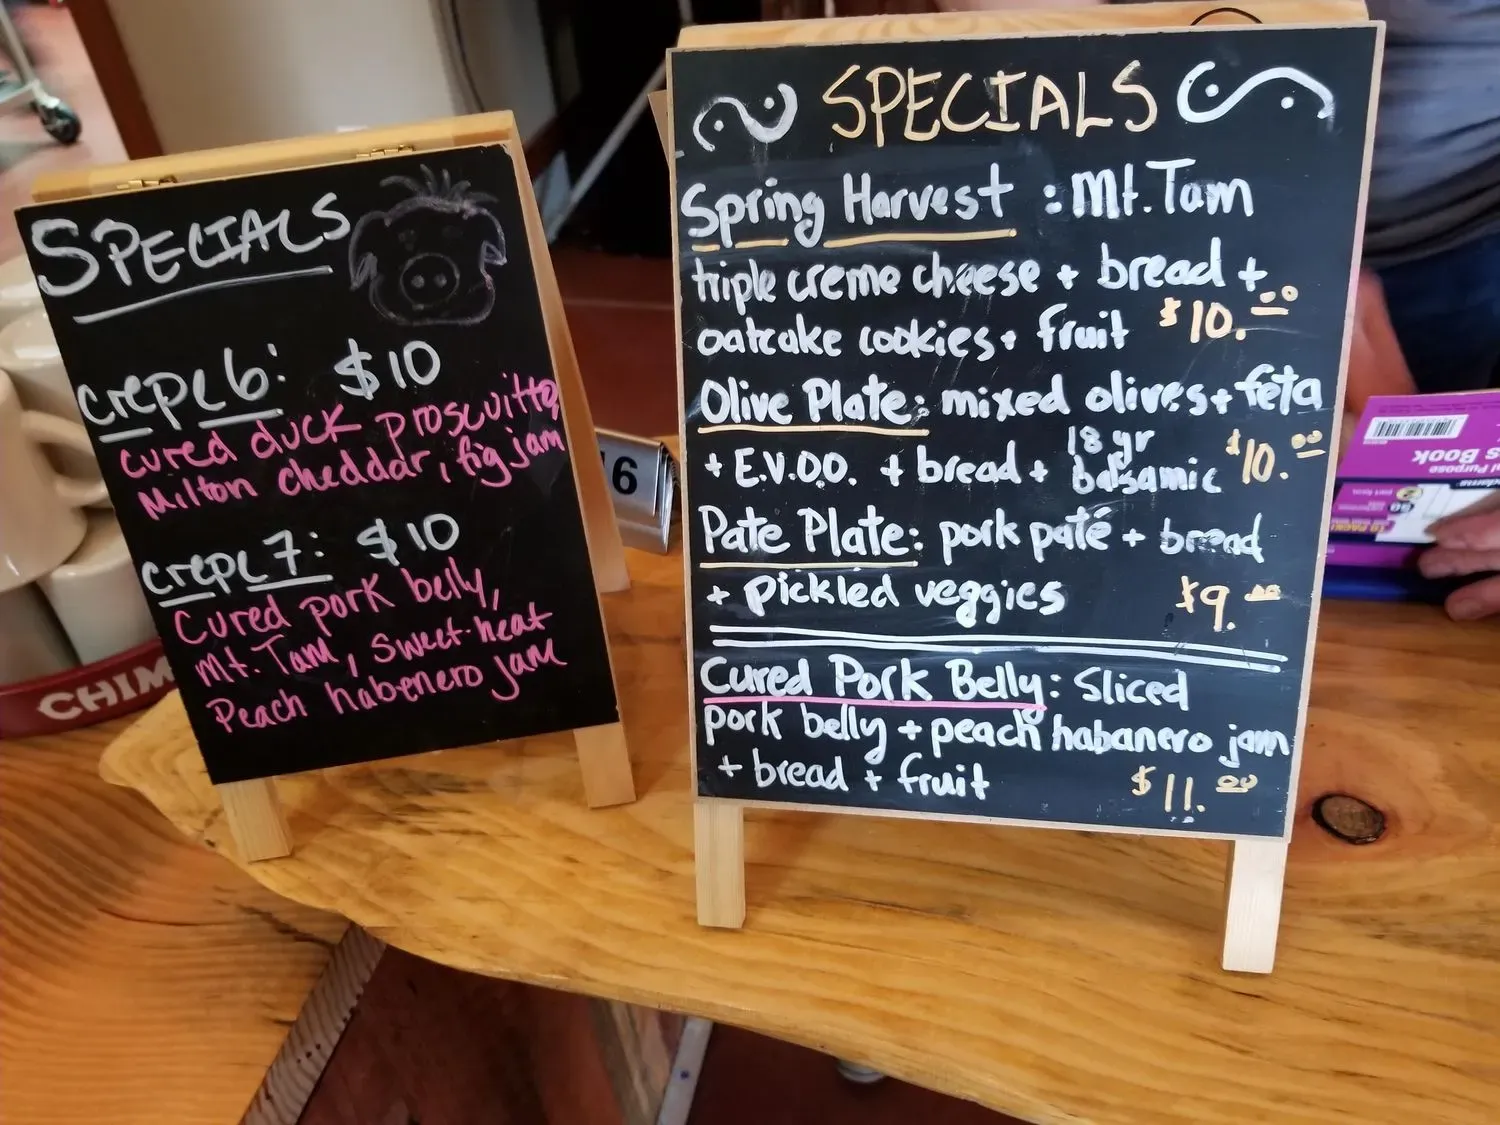 SPECIALS
crepe 6: $10
cured duck proscuitto,
Milton cheddar, fig jam
crepe 7: $10
Cured pork belly,
Mt. Tam, sweet-heat
Peach habenero jam
CHIM
16
SPECIALS
Spring Harvest : Mt. Tam
triple creme cheese + bread +
oatcake cookies + fruit $10.00
Olive Plate: mixed olives + feta
+ E.V.O.O. + bread + 18 yr balsamic $10.00
Pate Plate: pork paté + bread
+ pickled veggies $9.00
Cured Pork Belly: Sliced
pork belly + peach habanero jam
+ bread + fruit $11.00
s Book
Purpose